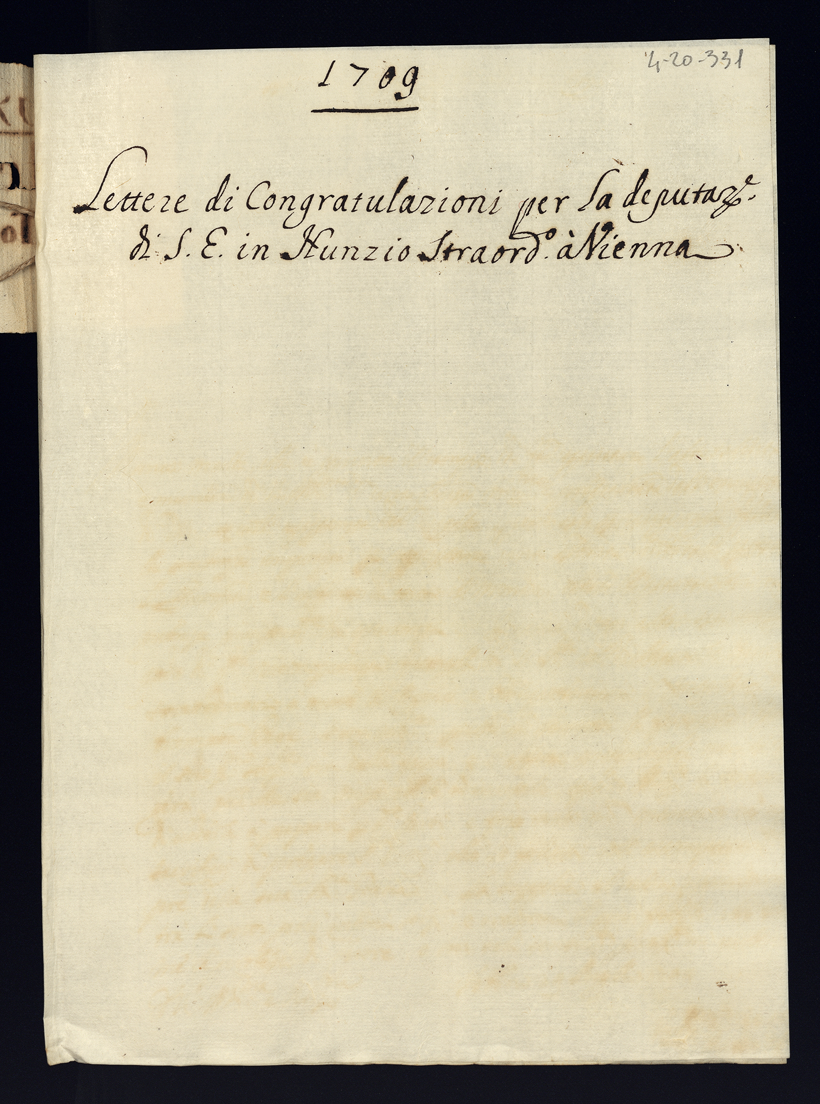 4-20-331
1709
Lettere di Congratulazioni per la deputaz.e
di S. E. in Nunzio Straord.o à Vienna